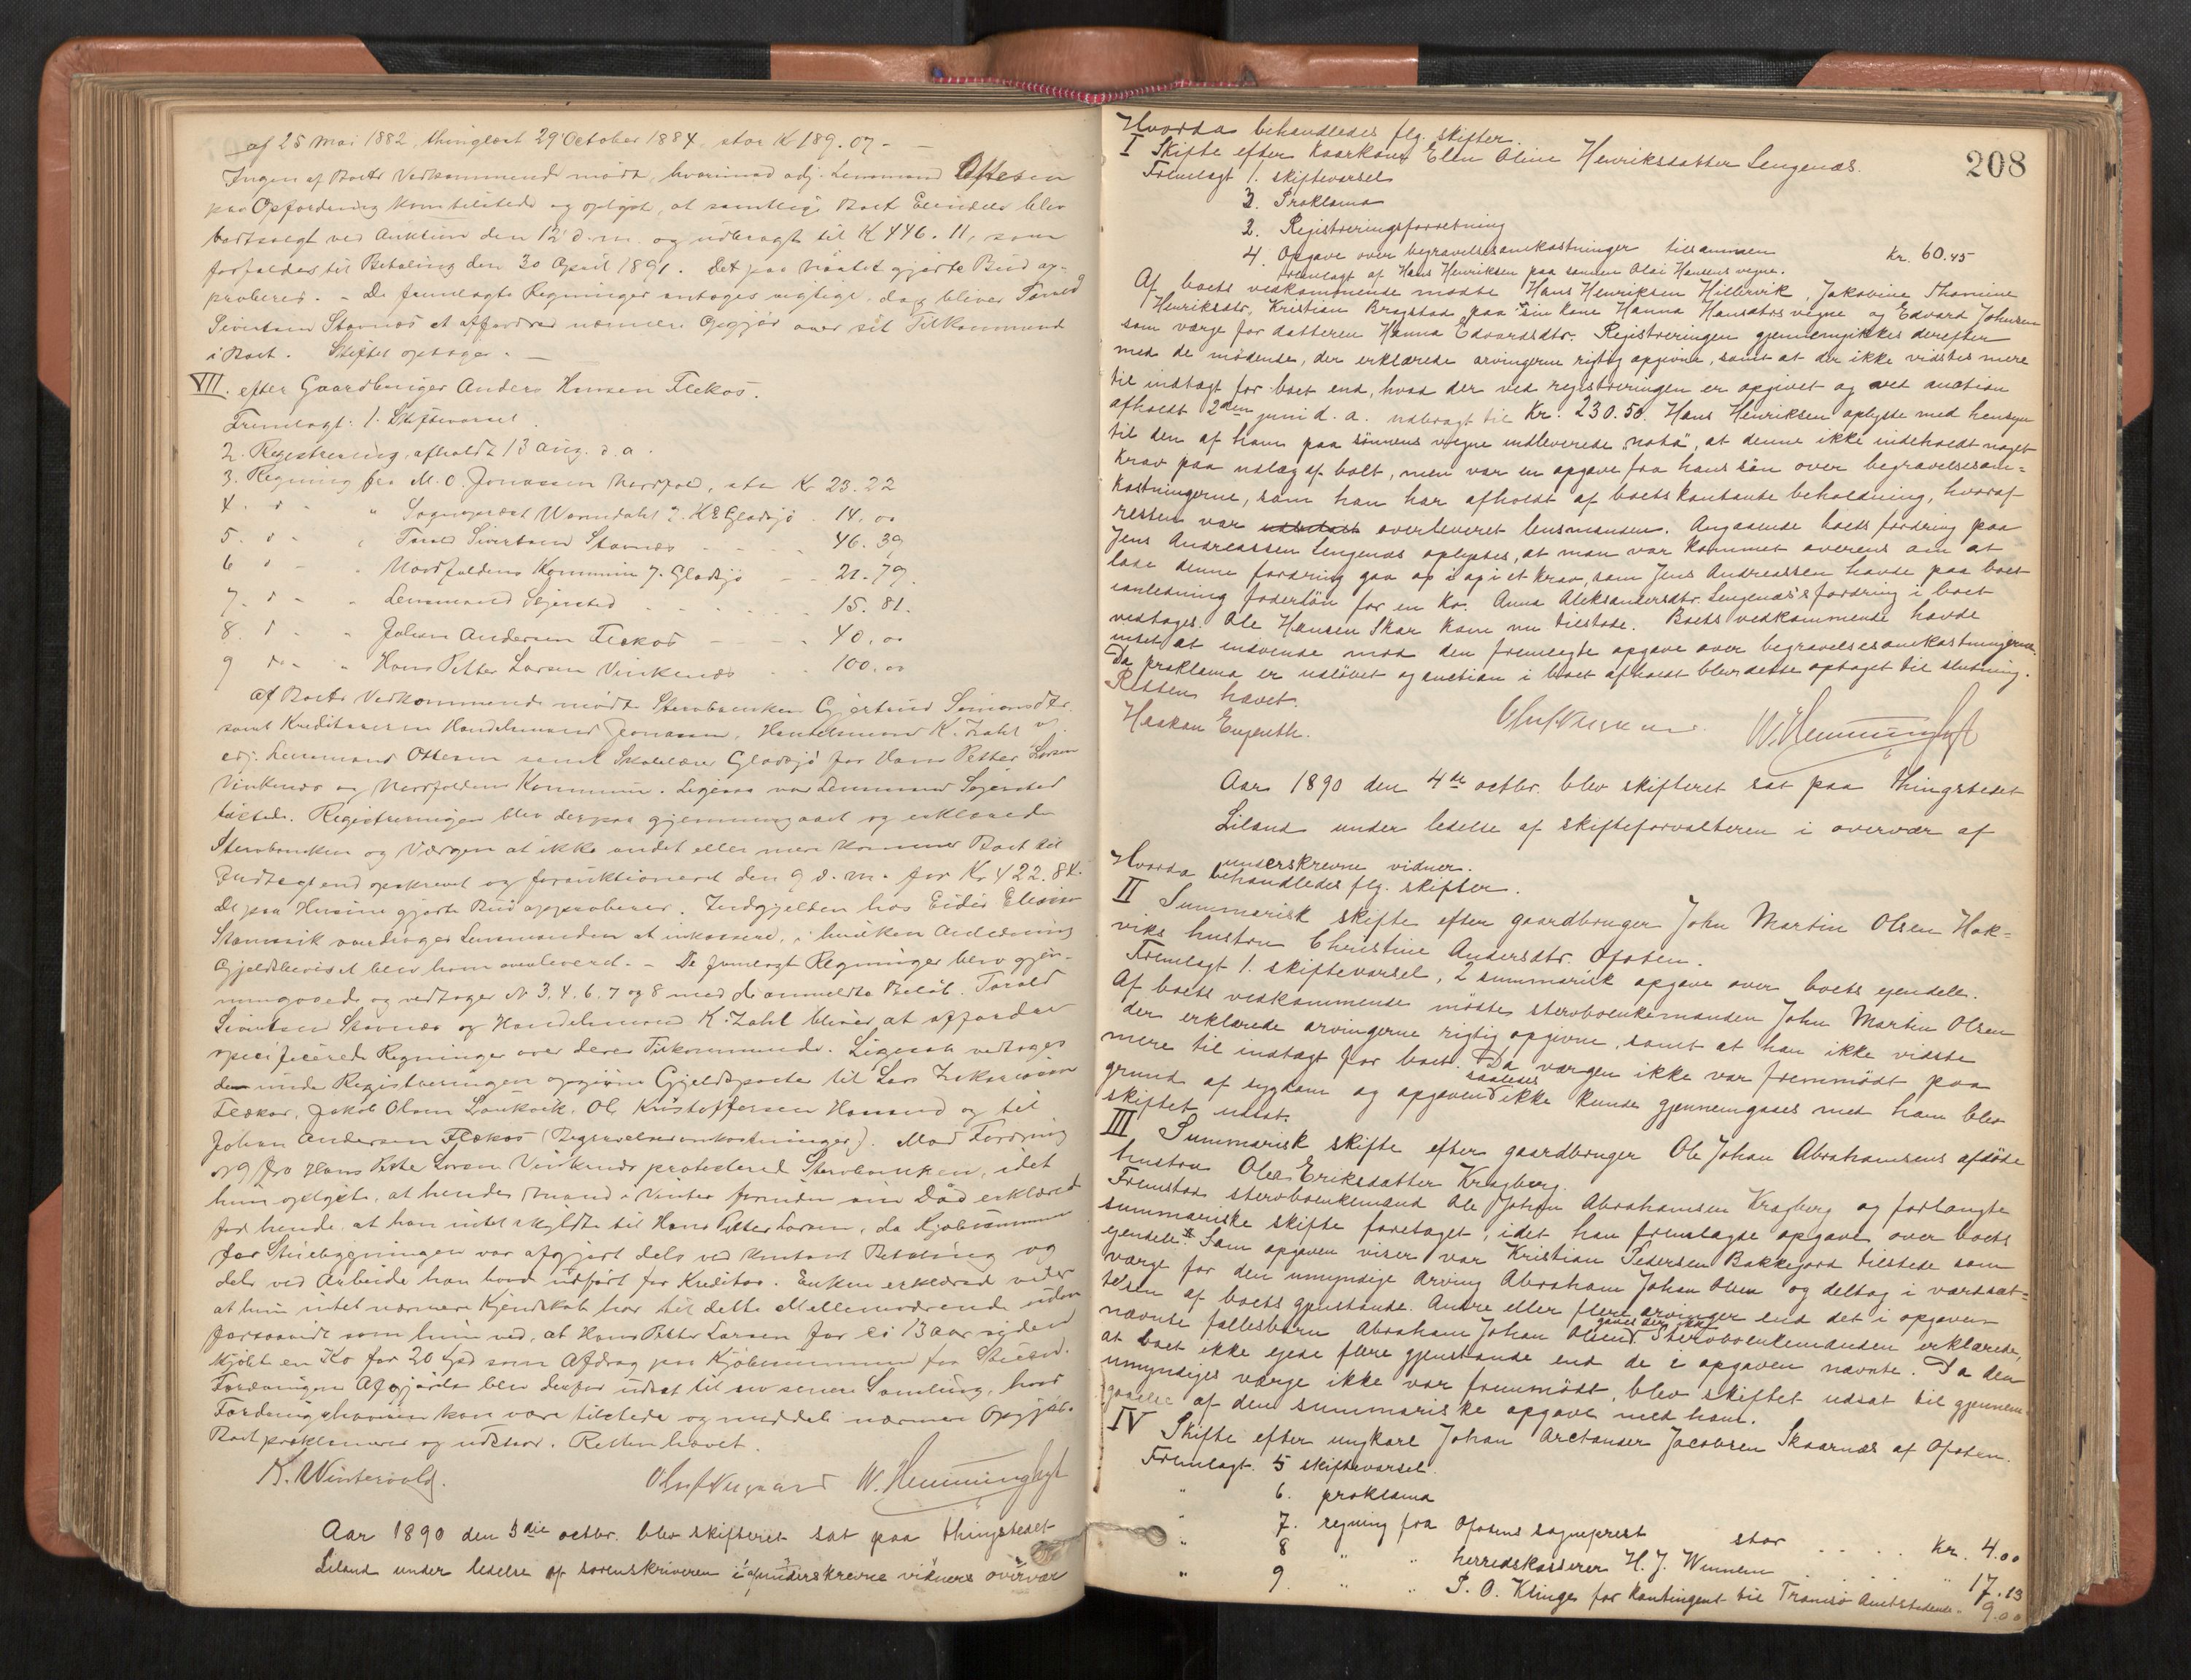 af 25 Mai 1882, thinglæst 29 October 1884, stor K 189.07 -
Ingen af Boets Vedkommende mødte, hvorimod adj. Lensmand Ottesen
paa Opfordning komtilstede og oplyst, at samtlige Boets Eiendele blev
bortsolgt ved Auktion den 12 d.m. og udbragt til K 446.11, som
forfalder til Betaling den 30 April 1891. Det paa gjorte Bud ap-
proberes. - De fremlagte Regninger antages rigtige, dog bliver Tarald
Sivertsen Stavnæs at affordres nærmere Opgjør over sit Tilkommende
i Boet. Skiftet optages. -
VII. efter Gaardbruger Anders Hansen Flekos.
Fremlagt: 1. Skiftevarsel
2. Registrering, afholdt 13 Aug. d.a.
3. Regning fra M. O. Jonassen Nordfold, stor K 23.22
4. d - " Sogneprest Warmdahl ved Gladsjø . 14.00
5. d - " Tarald Sivertsen Stavnæs - - - - 46.39
6 d - " Nordfoldens Kommune J. Gladsjø - - 21.79.
7. d - " Lensmand Sejersted - - - - - 15.81.
8. d - " Johan Andersen Flekos - - - 40.00
9 d - " Hans Petter Larsen Vinkenæs - - 100.00
Af Boets Vedkommende mødte Sterboenken Gjertrud Simonsdtr.
samt Kreditorerne Handelsmand Jonassen, Handelsmand K. Zahl v/
adj. Lensmand Ottesen samt Skolelærer Gladsjø for Hans Petter Larsen
Vinkenæs og Nordfoldens Kommune. Ligesaa var Lensmand Sejersted
tilstede. Registreringen blev derpaa gjennemgaaet og erklærede
Sterboenken og Værgen at ikke andet eller mere kommer Boet til
Indtægt end opskrevet og forauktioneret den 9 d.m. for Kr 422.84.
De paa Husene gjorte Bud approberes. Indgjelden hos Eidis
overdrages Lensmanden at inkassere, i hvilken Anledning
Gjeldsbeviset blev ham overleveret. - De fremlagte Regninger blev gjen-
nemgaaede og vedtages No 3.4.6.7 og 8 med de anmeldte Beløb. Tarald
Sivertsen Stavnæs og Handelsmand K. Zahl bliver at affordre
specificerede Regninger over deres Tilkommende. Ligesaa vedtages
de under Registreringen opgivne Gjeldsposter til Lars Zakariassen
Flekos, Jakob Olsen Laukvik, Ole Kristoffersen og til
Johan Andersen Flekos (Begravelsesomkostninger). Mod Fordring
No 9 fra Hans Petter Larsen Vinkenæs protesterede Sterboenken, idet
hun oplyste, at hendes Mand i Vinter forinden sin Død erklærede
for hende, at han intet skyldte til Hans Petter Larsen, da Kjøbesummen
for Stuebygningen var afgjort dels ved Kontant Betaling og
dels ved Arbeide han havde udført for Kreditor. Enken erklærede videre
at hun intet nærmere Kjendskab har til dette Mellemværende uden
forsaavidt som hun ved, at Hans Petter Larsen for ei 13 aar siden
kjøbt en Ko for 20 Spd som Afdrag paa Kjøbesummen for Stuen.
Fordringens Afgjørelse blev derfor udsat til en senere Samling, hvor
Fordringshaveren kan være tilstede og meddele nærmere Opgjør.
Boet proklameres og udstaar. Retten hævet.
K. Wintervold. Oluf Nergaard W. Hemmingho
Aar 1890 den 3die octbr. blev skifteret sat paa thingstedet
Liland under ledelse af sorenskriveren i af underskrevne vidners overvær
208
Hvorda behandledes flg. skifter.
I Skifte efter kaarkone Elen Oline Henriksdatter Lengenæs.
Fremlagt 1. skiftevarsel
3. Proklama
2. Registreringsforretning
4. Opgave over begravelsesomkostninger tilsammen kr. 60.45
fremlagt af Hans Henriksen paa sønnen Olai Hansens vegne.
Af boets vedkommende mødte Hans Henriksen Hillervik, Jakobine Thomine
Henriksdtr, Kristian Brogstad paa sin kone Hanna Hansdtrs vegne og Edvard Johnsen
som værge for datteren Hanna Edvardsdtr. Registreringen gjennemgikkes derefter
med de mødende, der erklærede arvingerne rigtig opgivne, samt at der ikke vidstes mere
til indtægt for boet end, hvad der ved registreringen er opgivet og ved auction
afholdt 2den juni d. a. udbragt til Kr. 230.50. Hans Henriksen oplyste med hensyn
til den af ham paa sønnens vegne indleverede "nota", at denne ikke indeholdt noget
krav paa udlæg af boet, men var en opgave fra hans søn over begravelsesom-
kostningerne, som han har afholdt af boets kontante beholdning, hvoraf
resten var overleveret lensmanden. Angaaende boets fordring paa
Jens Andreassen Lengenæs oplystes, at man var kommet overens om at
lade denne fordring gaa op i op i et krav, som Jens Andreassen havde paa boet
i anledning foderløn for en ko. Anna Aleksandersdtr. Lengenæs's fordring i boet
vedtages. Ole Hansen Skar kom nu tilstede. Boets vedkommende havde
intet at indvende mod den fremlagte opgave over begravelsesomkostningerne.
Da proklama er udløbet og auction i boet afholdt blev dette optaget til slutning.
Retten hævet.
Haakon Engenth. Oluf Nergaard. W. Hemmingho
Aar 1890 den 4de octbr. blev skifteret sat paa thingstedet
Liland under ledelse af skifteforvalteren i overvær af
underskrevne vidner.
Hvorda behandledes flg. skifter.
II Summarisk skifte efter gaardbruger John Martin Olsen Hok-
viks hustru Christine Andersdtr. Ofoten.
Fremlagt 1. skiftevarsel, 2 summarisk opgave over boets ejendele.
Af boets vedkommende mødte sterboenkemanden John Martin Olsen
der erklærede arvingerne rigtig opgivne, samt at han ikke vidste
mere til indtægt for boet. Da værgen ikke var fremmødt paa
grund af sygdom og opgaven saaledes ikke kunde gjennemgaaes med ham blev
skiftet udsat.
III Summarisk skifte efter gaardbruger Ole Johan Abrahamsens afdøde
hustru Olea Eriksdatter Kragberg.
Fremstod sterboenkemand Ole Johan Abrahamsen Kragberg og forlangte
summariske skifte foretaget, idet han fremlagde opgave over boets
ejendele. Som opgaven viser var Kristian Pedersen Bakkejord tilstede som
værge for den umyndige arving Abraham Johan Olsen og deltog i værdsæt-
telsen af boets gjenstande. Andre eller flere arvinger end det i opgaven
nævnte fællesbarn Abraham Johan Olsen gaves der ikke. Sterboenkemanden erklærede,
at boet ikke ejede flere gjenstande end de i opgaven nævnte. Da den
umyndiges værge ikke var fremmødt, blev skiftet udsat til gjennem-
gaaelse af den summariske opgave med ham.
IV Skifte efter ungkarl Johan Arctander Jacobsen Skaarnæs af Ofoten.
Fremlagt. 5 skiftevarsel.
" 6. proklama
" 7. regning fra Ofotens sogneprest stor . . . . kr. 4.00
" 8 " " herredskasserer H. J. Wennem . . . " 17.13
" 9. " " P. O. Klinge for kontingent til Tromsø Amtstidende " 9.00